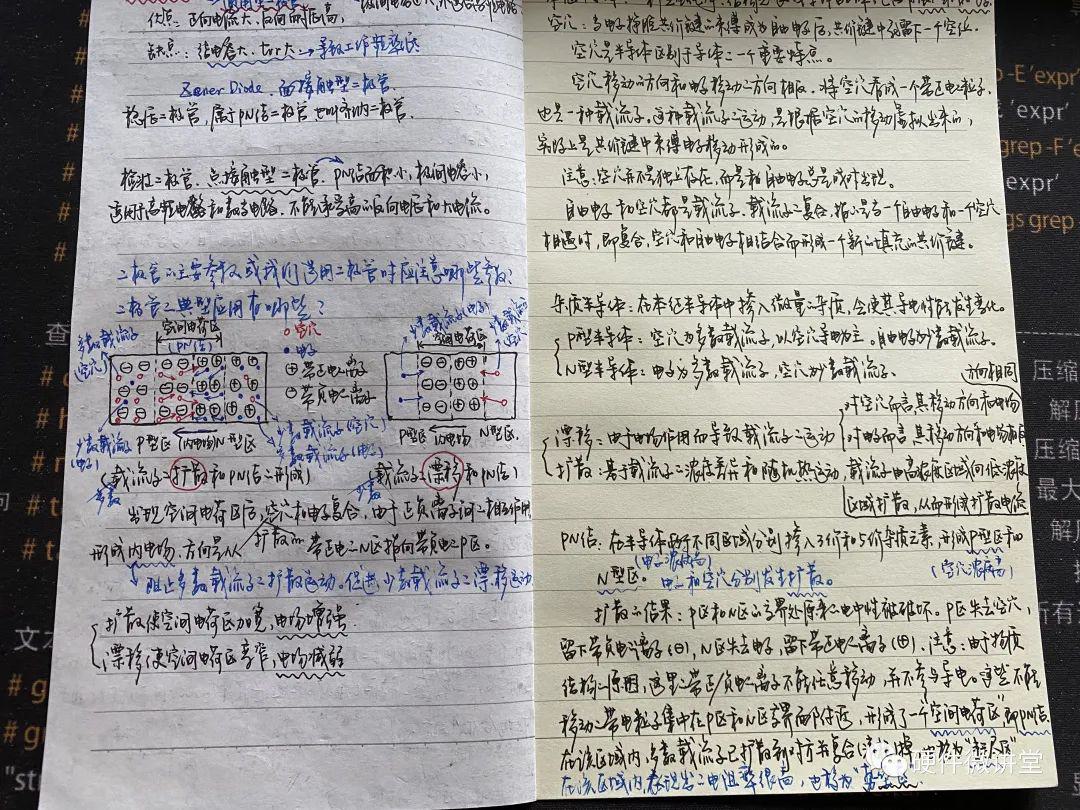 优点：正向电流大，反向耐压高，
缺点：结电容大，trr大→导致工作频率低
Zener Diode，面接触型二极管
稳压二极管，属于PN结二极管 也叫齐纳二极管.
检波二极管. 点接触型二极管. PN结面积小，极间电容小，
适用于高频电路和数字电路，不能承受高的反向电压和大电流。
二极管的主要参数或我们选用二极管时应注意哪些参数？
二极管的典型应用有哪些？
多数载流子(空穴)
空间电荷区
(PN结)
空穴
电子
⊕ 带正电的离子
⊖ 带负电的离子
少数载流子(电子)
空间电荷区
少数载流子(电子)
P型区 内电场 N型区
少数载流子(空穴)
多数载流子(电子)
P型区 内电场 N型区.
(载流子的扩散和PN结的形成)
多数
(载流子的漂移和PN结)
少数
出现空间电荷区后，空穴和电子复合，由于正负离子间的相互作用
形成内电场. 方向是从 带正电的N区指向带负电的P区。
扩散的
阻止多数载流子的扩散运动. 促进少数载流子的漂移运动
扩散使空间电荷区加宽，电场增强.
漂移使空间电荷区变窄，电场减弱
空穴：当电子挣脱共价键的束缚成为自由电子后，共价键中就留下一个空位.
空穴是半导体区别于导体的一个重要特点.
空穴移动的方向和电子移动的方向相反. 将空穴看成一个带正电的粒子.
也是一种载流子. 这种载流子的运动，是根据空穴的移动虚拟出来的，
实际上是共价键中束缚电子移动形成的。
注意：空穴并不是独立存在，而是和自由电子总是成对出现。
自由电子和空穴都是载流子. 载流子的复合，指的是当一个自由电子和一个空穴
相遇时，即复合，空穴和自由电子相结合而形成一个新的填充的共价键。
杂质半导体：在本征半导体中掺入微量的杂质，会使其导电性能发生变化。
P型半导体：空穴为多数载流子，以空穴导电为主，自由电子为少数载流子。
N型半导体：电子为多数载流子，空穴为少数载流子.
方向相同
对空穴而言，其移动方向和电场
漂移：由于电场作用而导致载流子的运动
对电子而言，其移动方向和电场相反
扩散：基于载流子的浓度差异和随机热运动，载流子由高浓度区域向低浓度
区域扩散，从而形成扩散电流
PN结：在半导体的不同区域分别掺入3价和5价杂质元素，形成P型区和
N型区。(电子浓度高) (空穴浓度高)
电子和空穴分别发生扩散。
扩散的结果：P区和N区的交界处原来的电中性被破坏. P区失去空穴，
留下带负电的离子(⊖)，N区失去电子，留下带正电的离子(⊕). 注意：由于物质
结构的原因，这里的带正负电的离子不能任意移动，并不参与导电。这些不能
移动的带电粒子集中在P区和N区交界面附近，形成了一个“空间电荷区”，即PN结.
在该区域内，多数载流子已扩散到对方并复合掉，也称为“耗尽区”
在该区域内，表现出的电阻率很高，也称为
硬件微讲堂
查
文本
"str
# g
-E 'expr'
e 'expr'
grep -F'e
expr'
gs grep
压缩
解压
压缩
最大
解压
所有